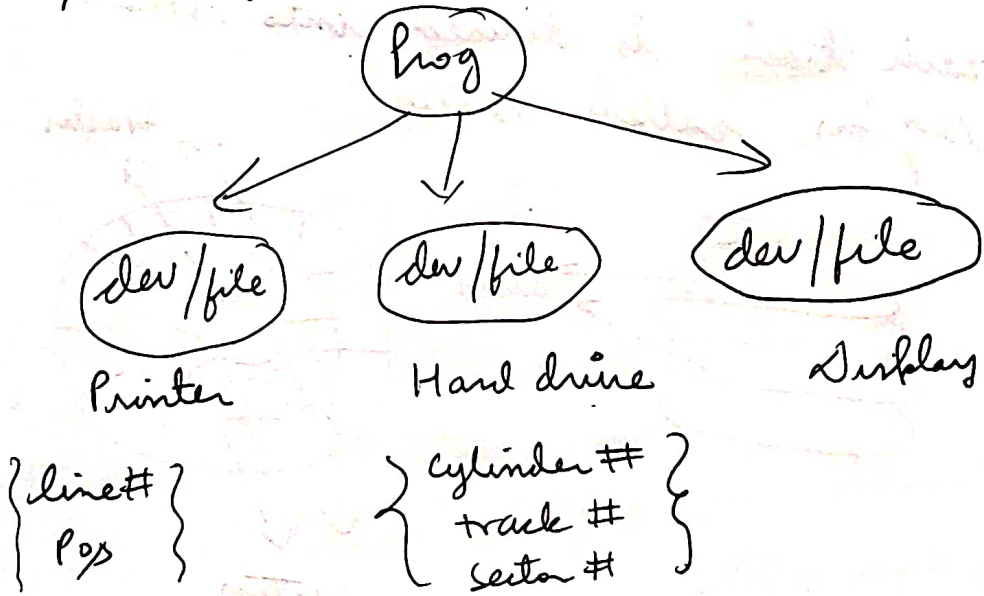 Prog
dev/file dev/file dev/file
Printer Hard drive Display
{ line# } { cylinder # }
pos track #
sector #